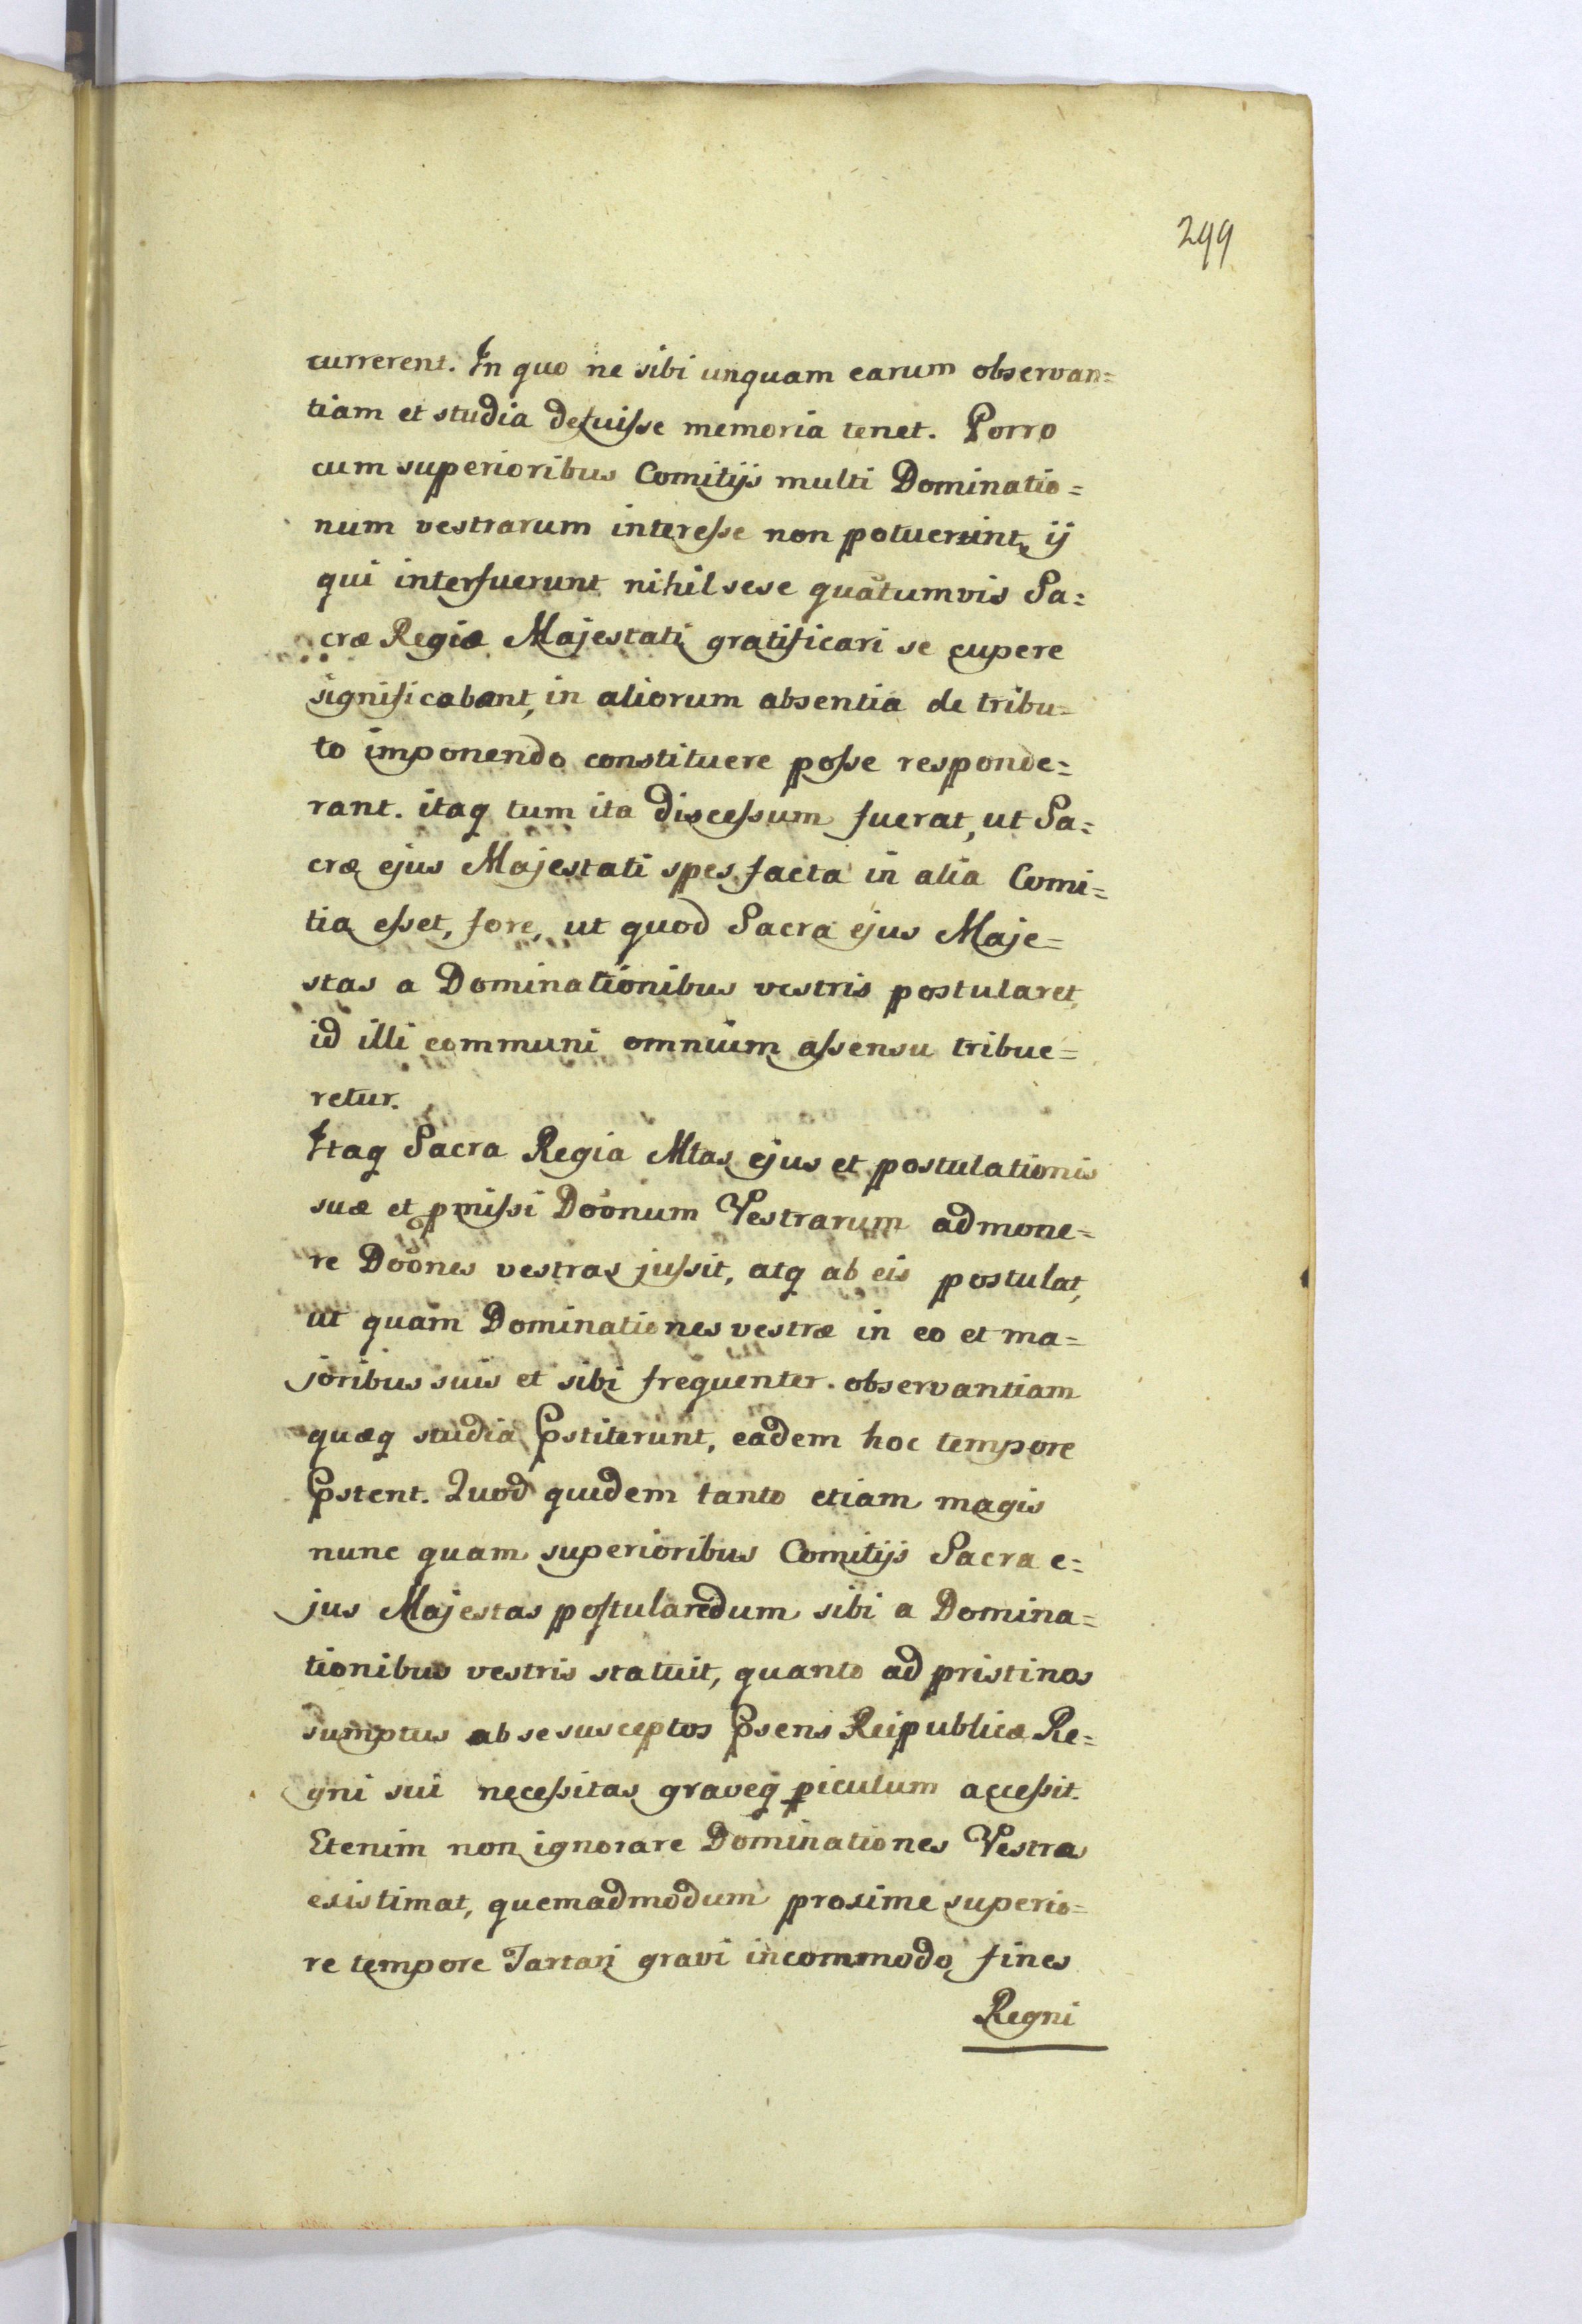 299
currerent. In quo ne sibi unquam earum observan=
tiam et studia defuisse memoria tenet. Porro
cum superioribus Comitijs multi Dominatio=
num vestrarum interesse non potuerint, ij
qui interfuerunt nihil sese quātumvis Sa=
cræ Regiæ Majestati gratificari se cupere
significabant, in aliorum absentia de tribu=
to imponendo constituere posse responde=
rant. itaq tum ita discessum fuerat, ut Sa=
cræ ejus Majestati spes facta in alia Comi=
tia esset, fore, ut quod Sacra ejus Maje=
stas a Dominationibus vestris postularet,
id illi communi omnium assensu tribue=
retur.
Itaq Sacra Regia Mtas ejus et postulationis
suæ et pmissi Doonum Vestrarum admone=
re Doones vestras jussit, atq ab eis postulat,
ut quam Dominationes vestræ in eo et ma=
joribus suis et sibi frequenter observantiam
quæq studia pstiterunt, eadem hoc tempore
pstent. Quod quidem tanto etiam magis
nunc quam superioribus Comitijs Sacra e=
jus Majestas postulandum sibi a Domina=
tionibus vestris statuit, quanto ad pristinos
sumptus ab se susceptos psens Reipublicæ Re=
gni sui necessitas graveq piculum accessit.
Etenim non ignorare Dominationes Vestras
existimat, quemadmodum proxime superio=
re tempore Tartari gravi incommodo fines
Regni